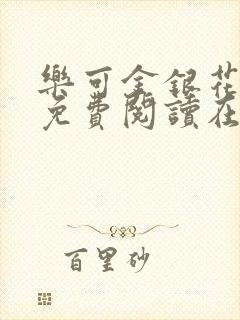 樂可金銀花
免費閱讀在
百里砂